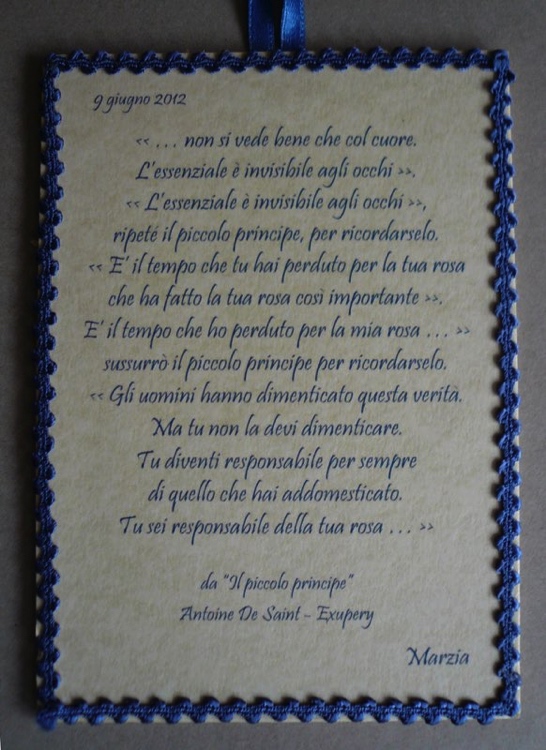 9 giugno 2012
<< ... non si vede bene che col cuore.
L'essenziale è invisibile agli occhi >>.
<< L'essenziale è invisibile agli occhi >>,
ripeté il piccolo principe, per ricordarselo.
<< E' il tempo che tu hai perduto per la tua rosa
che ha fatto la tua rosa così importante >>.
E' il tempo che ho perduto per la mia rosa ... >>
sussurrò il piccolo principe per ricordarselo.
<< Gli uomini hanno dimenticato questa verità.
Ma tu non la devi dimenticare.
Tu diventi responsabile per sempre
di quello che hai addomesticato.
Tu sei responsabile della tua rosa ... >>
da "Il piccolo principe"
Antoine De Saint - Exupery
Marzia